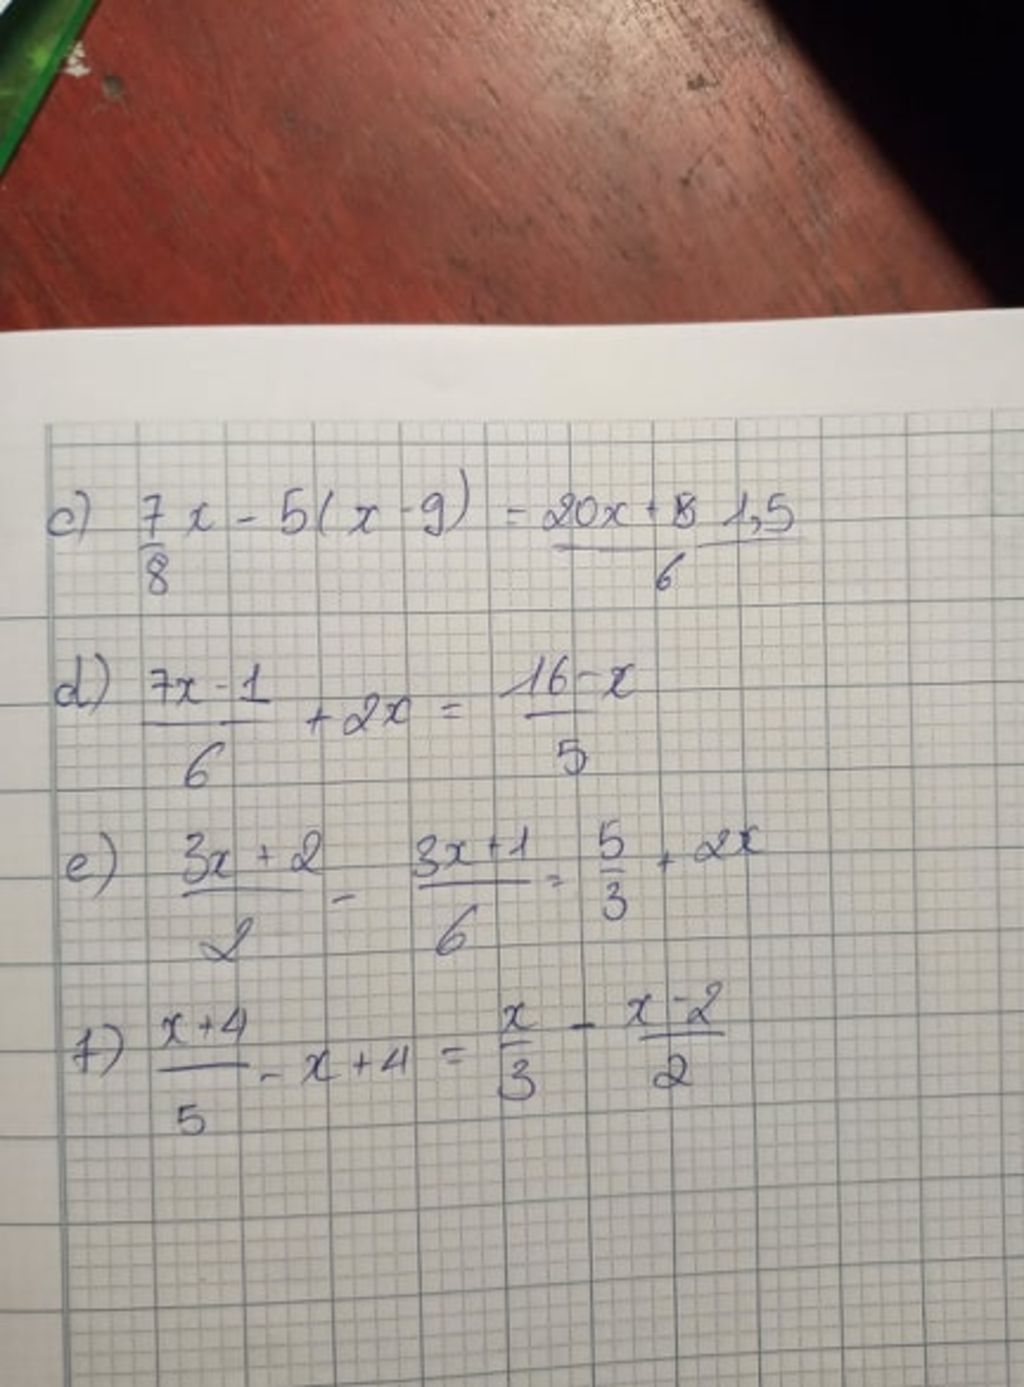 c) 7/8 x - 5(x - 9) = (20x + 8 1,5)/6
d) (7x - 1)/6 + 2x = (16 - x)/5
e) (3x + 2)/2 - (3x + 1)/6 = 5/3 + 2x
f) (x + 4)/5 - x + 4 = x/3 - (x - 2)/2